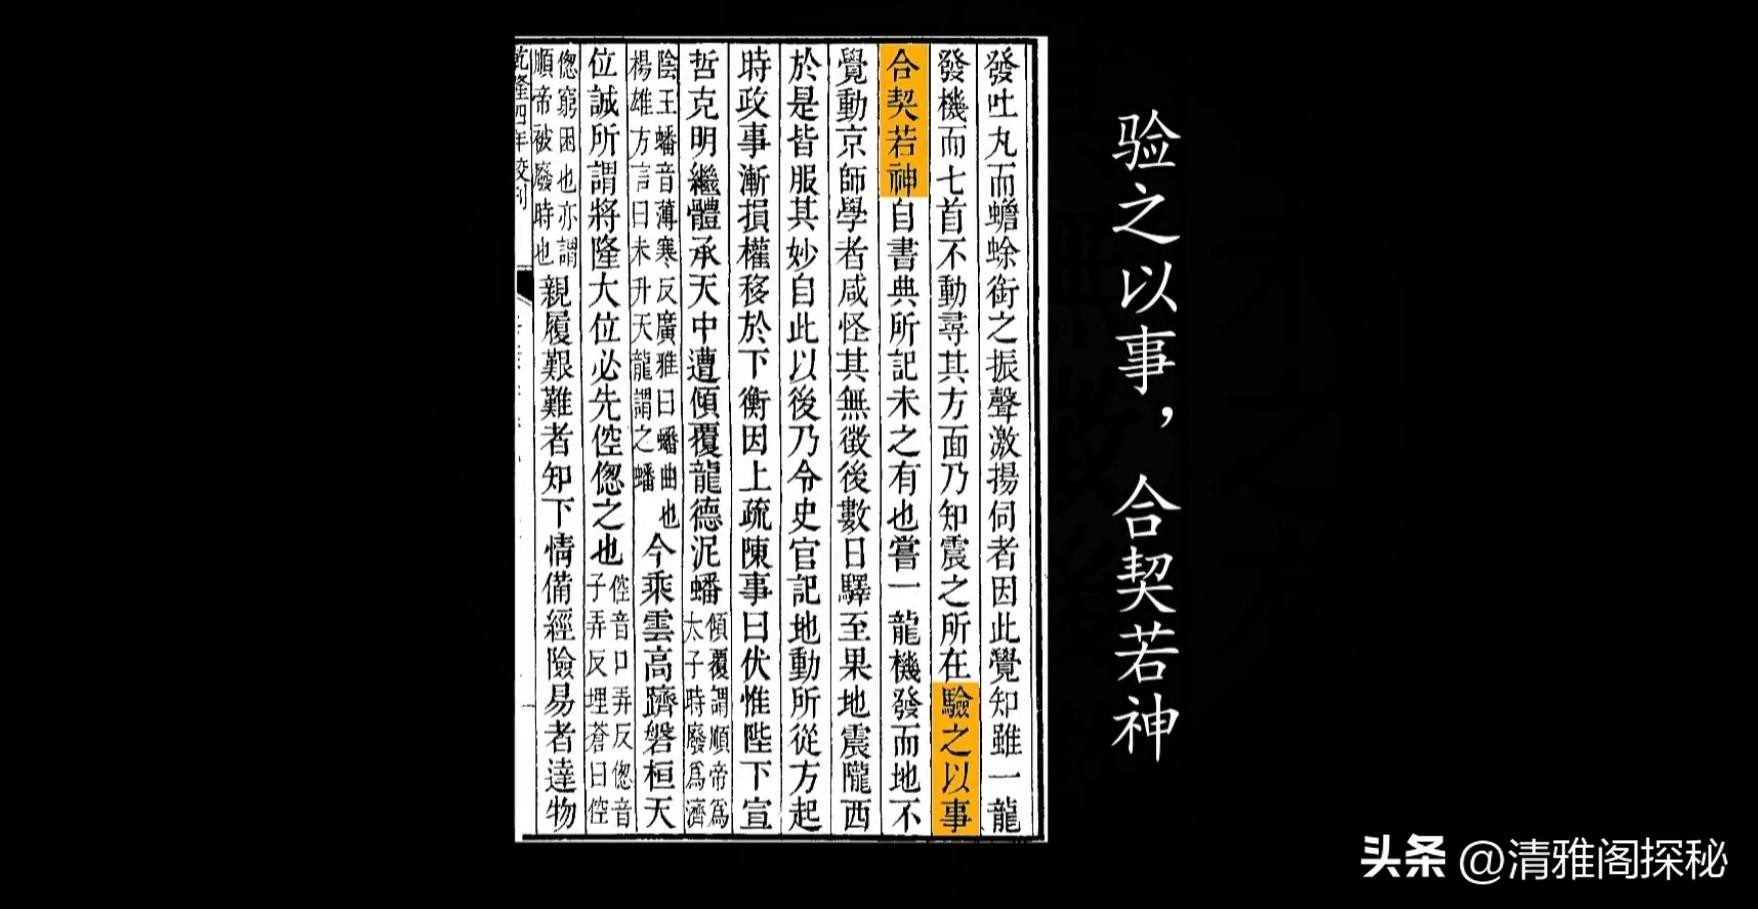 發吐丸而蟾蜍銜之振聲激揚伺者因此覺知雖一龍
發機而七首不動尋其方面乃知震之所在驗之以事
合契若神自書典所記未之有也嘗一龍機發而地不
覺動京師學者咸怪其無徵後數日驛至果地震隴西
於是皆服其妙自此以後乃令史官記地動所從方起
時政事漸損權移於下衡因上疏陳事曰伏惟陛下宣
哲克明繼體承天中遭傾覆龍德泥蟠傾覆謂順帝為太子時廢為濟
陰王蟠音薄寒反廣雅曰蟠曲也楊雄方言曰未升天龍謂之蟠今乘雲高躋磐桓天
位誠所謂將隆大位必先倥傯之也倥音口弄反傯音子弄反埋蒼曰倥
傯窮困也亦謂順帝被廢時也親履艱難者知下情備經險易者達物
乾隆四年校刊
验之以事，合契若神
头条 @清雅阁探秘